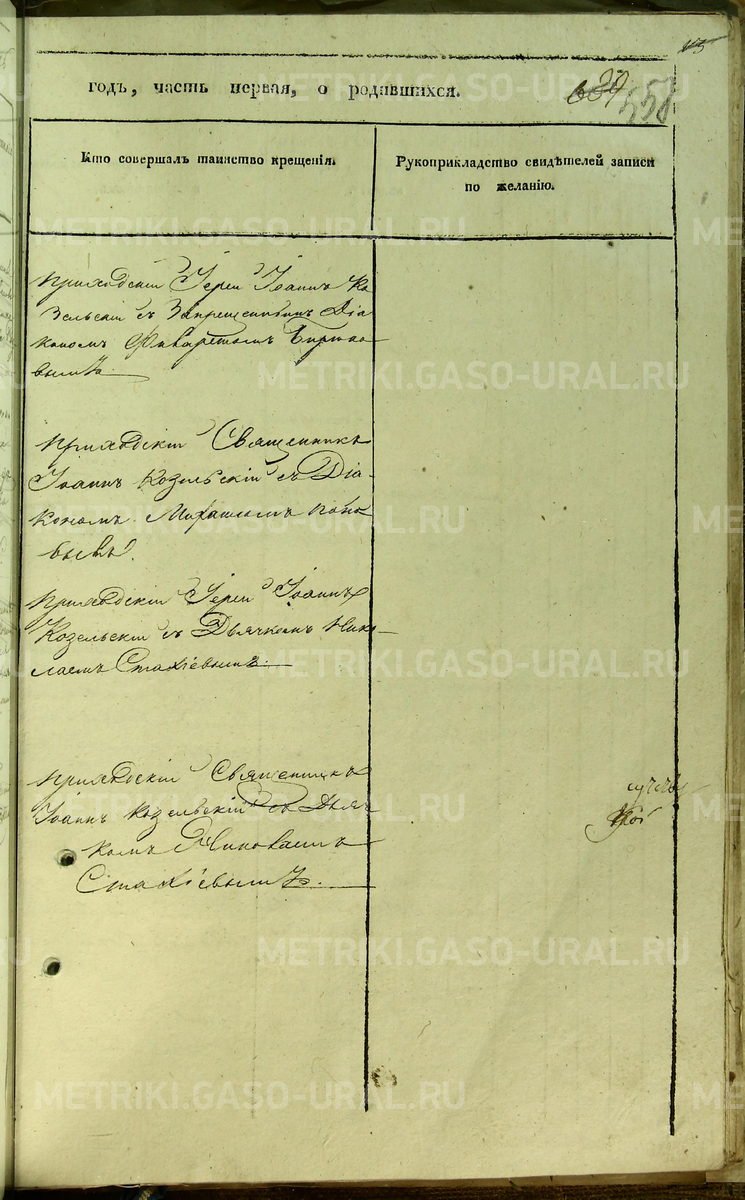 годъ, часть первая, о родившихся.
558
Кто совершалъ таинство крещенія.
Рукоприкладство свидѣтелей записи
по желанію.
Приходскій Іерей Іоаннъ Ко
зельскій съ Запрещеннымъ Діа
кономъ Филаретомъ
Приходскій Священникъ
Іоаннъ Козельскій съ Діа-
кономъ Попо
вымъ.
Приходскій Іерей Іоаннъ
Козельскій съ Дьячкомъ Нико-
лаемъ Стахіевымъ.
Приходскій Священникъ
Іоаннъ Козельскій съ Дьяч
комъ Николаемъ
Стахіевымъ.
METRIKI.GASO-URAL.RU